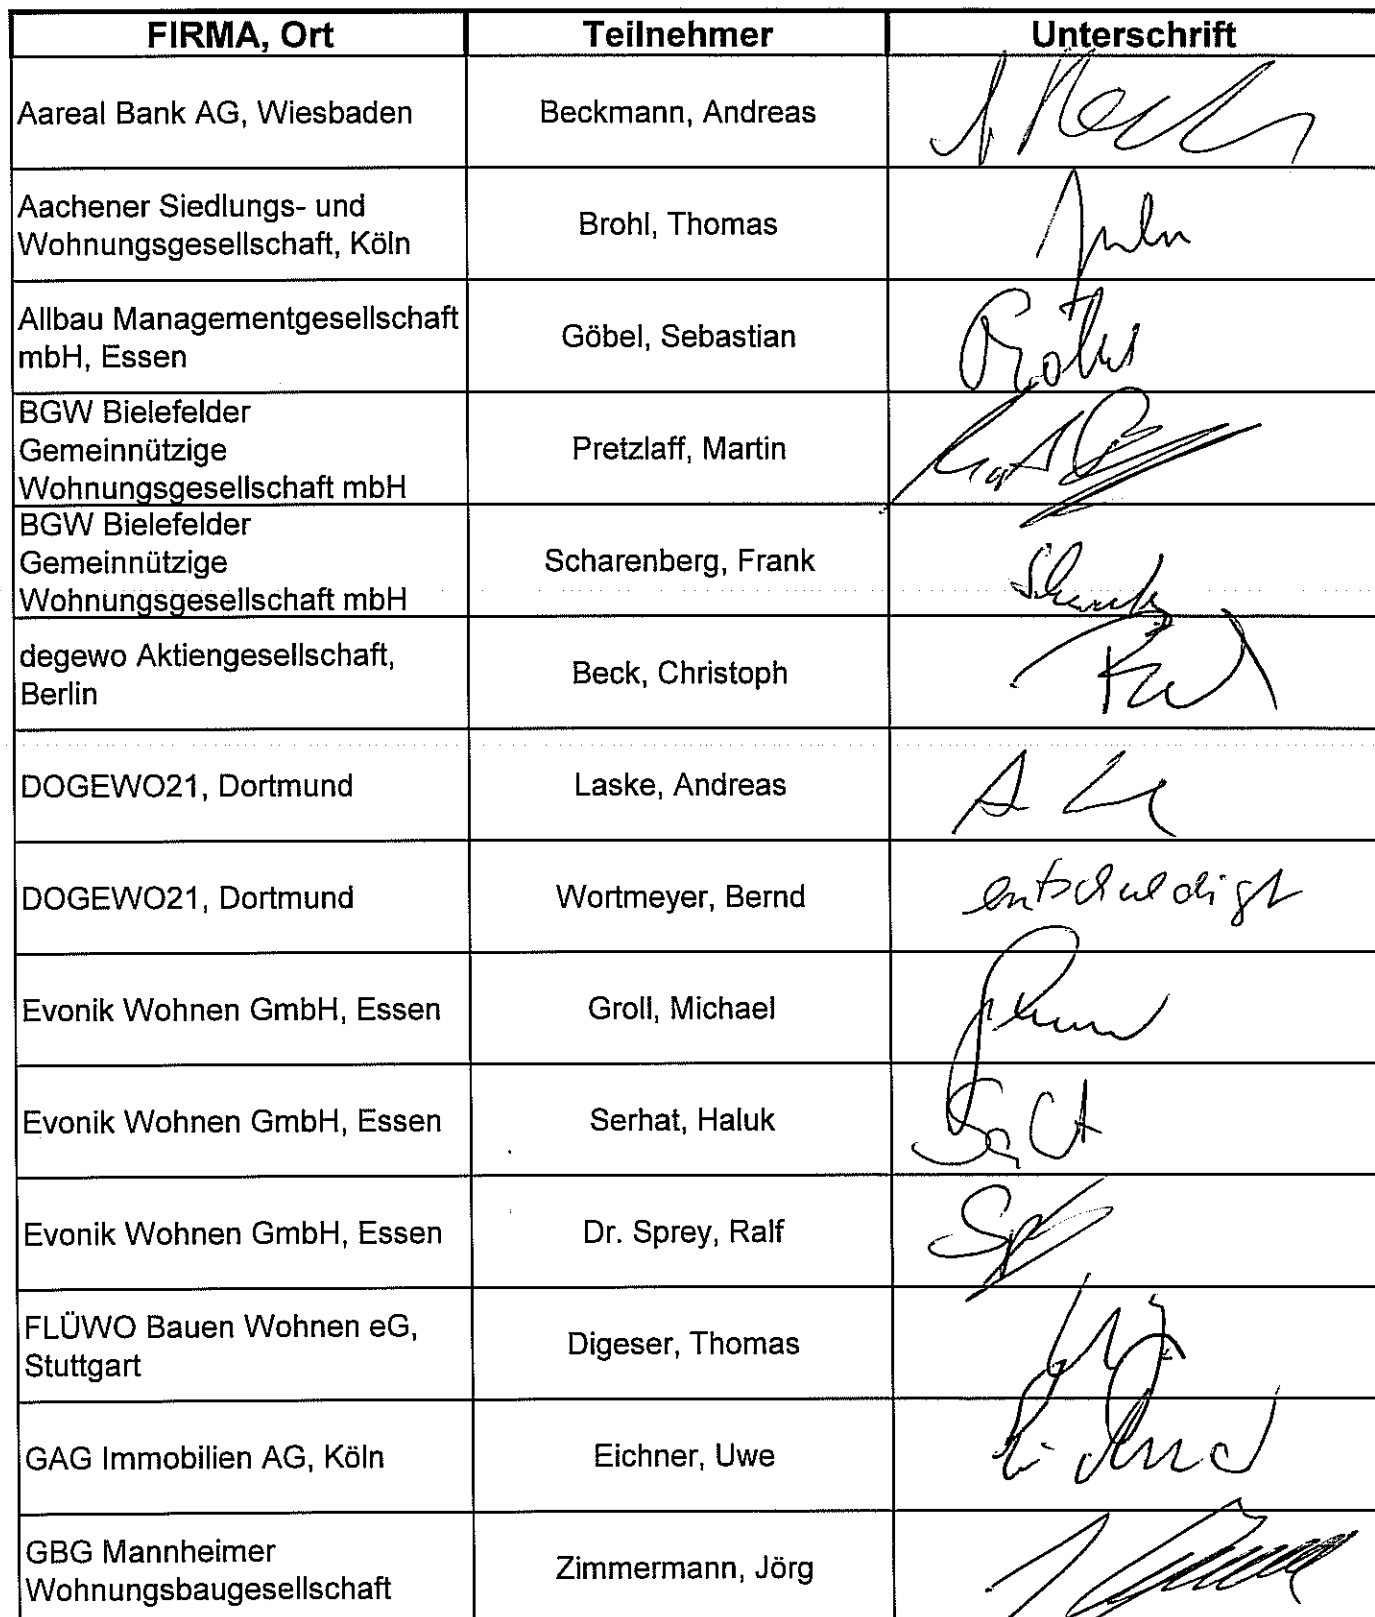 FIRMA, Ort Teilnehmer Unterschrift
Aareal Bank AG, Wiesbaden Beckmann, Andreas
Aachener Siedlungs- und
Wohnungsgesellschaft, Köln Brohl, Thomas
Allbau Managementgesellschaft
mbH, Essen Göbel, Sebastian
BGW Bielefelder
Gemeinnützige
Wohnungsgesellschaft mbH Pretzlaff, Martin
BGW Bielefelder
Gemeinnützige
Wohnungsgesellschaft mbH Scharenberg, Frank
degewo Aktiengesellschaft,
Berlin Beck, Christoph
DOGEWO21, Dortmund Laske, Andreas
DOGEWO21, Dortmund Wortmeyer, Bernd entschuldigt
Evonik Wohnen GmbH, Essen Groll, Michael
Evonik Wohnen GmbH, Essen Serhat, Haluk
Evonik Wohnen GmbH, Essen Dr. Sprey, Ralf
FLÜWO Bauen Wohnen eG,
Stuttgart Digeser, Thomas
GAG Immobilien AG, Köln Eichner, Uwe
GBG Mannheimer
Wohnungsbaugesellschaft Zimmermann, Jörg